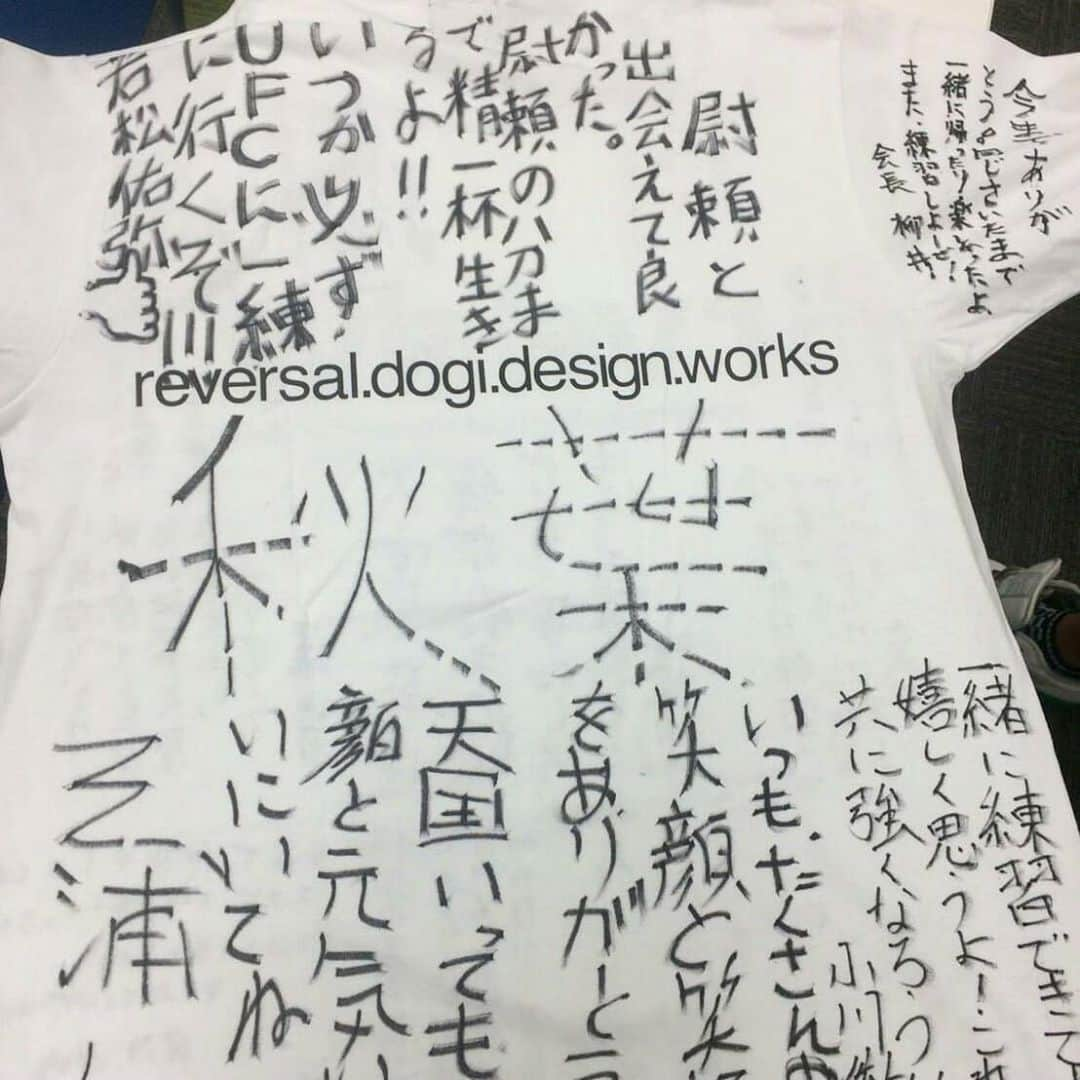 今まであり が
とう。同じさいたまで
一緒に帰ったり楽しかったよ
また、練習しよーぜ！
会長 柳井
尉頼と
出会えて良
かった。
尉頼の八分ま
で精一杯生き
るよ!!
いつか必ず！
UFCに一緒
に行くぞ!!!
若松佑弥
reversal.dogi.design.works
秋葉
一緒に練習できて
嬉しく思うよー！これ
共に強くなろう
小川
いつも、たくさんの
笑顔と笑
をありがーとー
天国いっても
顔と元気
いにいてね
三浦